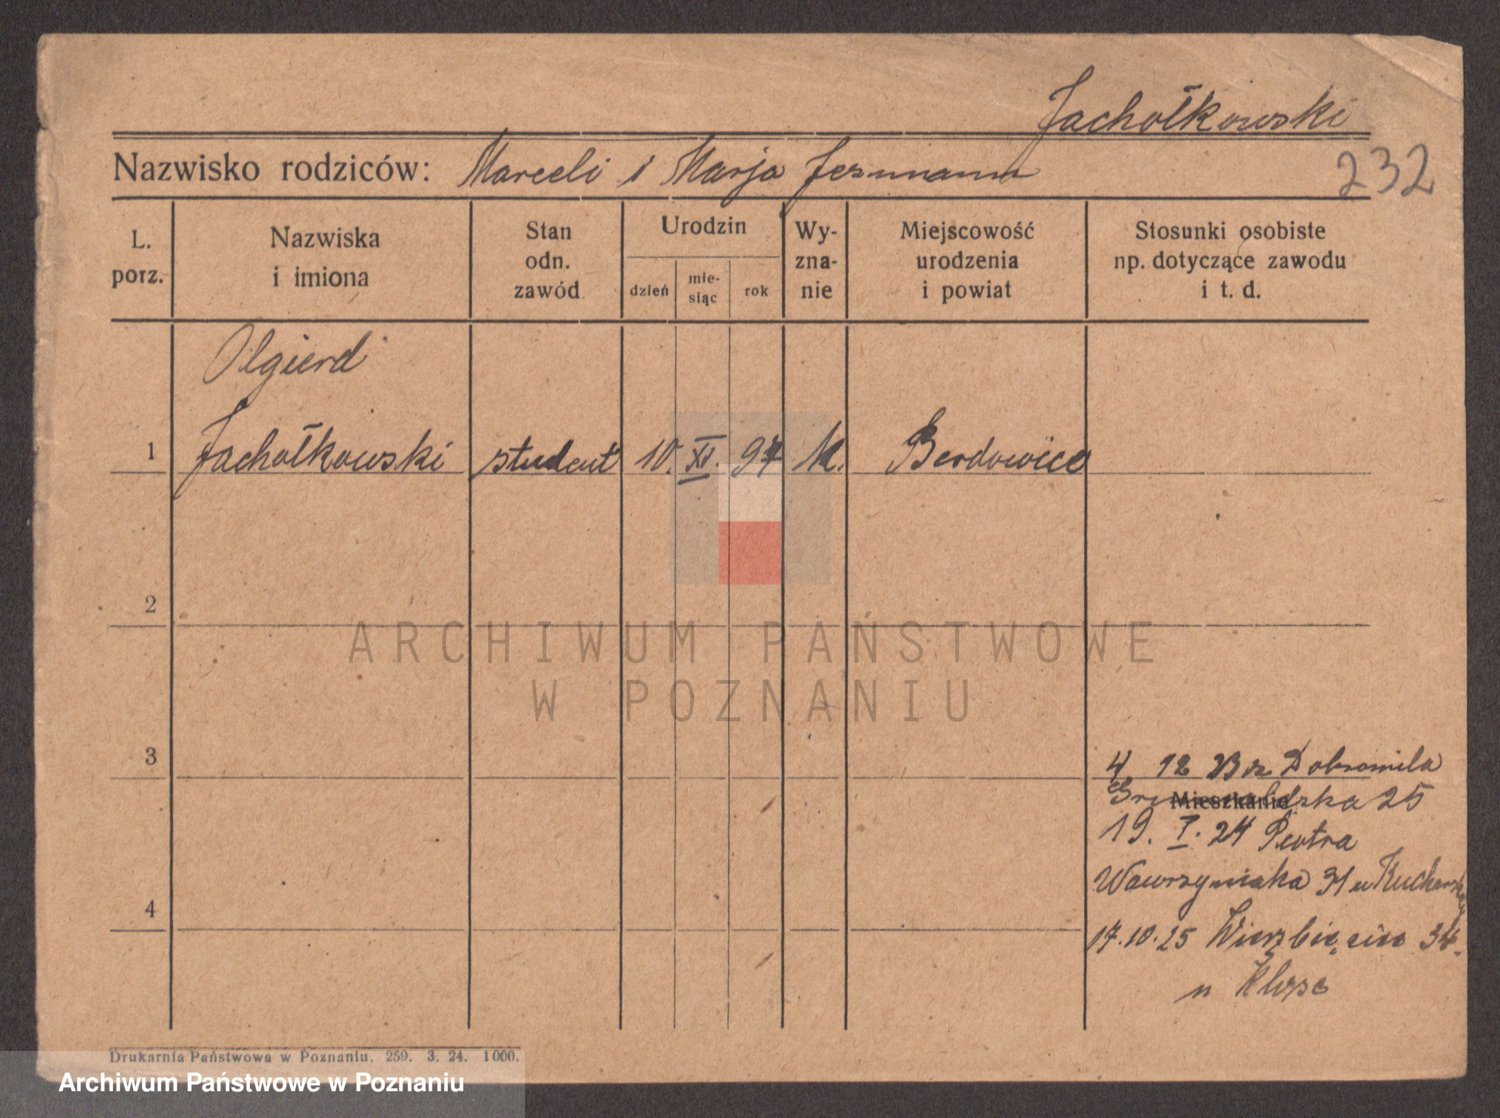 Jachołkowski
Nazwisko rodziców: Marceli i Marja
232
L. porz.
Nazwiska i imiona
Stan odn. zawód
Urodzin
dzień
mie- siąc
rok
Wy- zna- nie
Miejscowość urodzenia i powiat
Stosunki osobiste np. dotyczące zawodu i t. d.
Olgierd
1 Jachołkowski student 10. XI. 97 Berdowice
2
ARCHIWUM PAŃSTWOWE
W POZNANIU
3
4 12 23 Dobromila
Mieszkanie 25
19. I. 24 Piotra
Wawrzyniaka 31 u
4
17.10.25 Wierzbięcice 34
u
Drukarnia Państwowa w Poznaniu. 259. 3. 24. 1000.
Archiwum Państwowe w Poznaniu